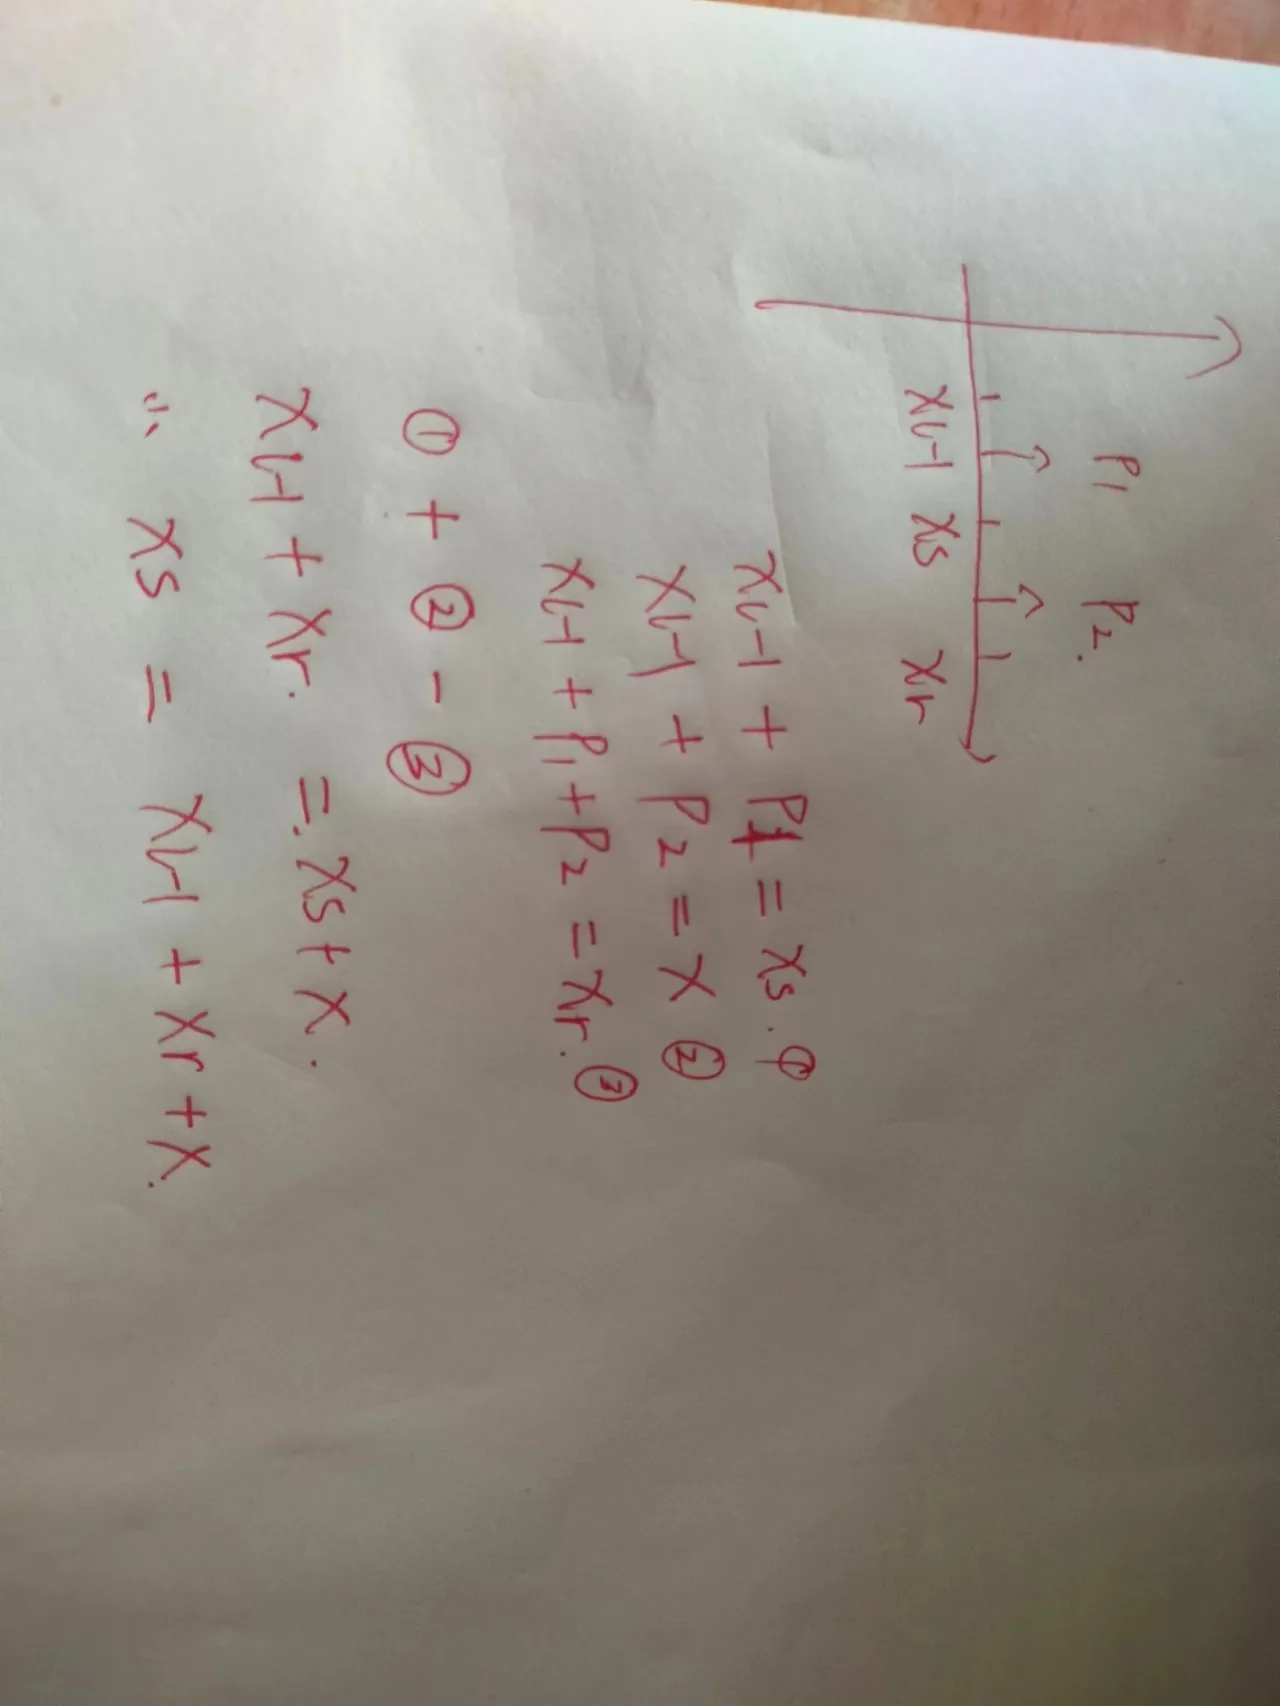 P1 P2.
xl-1 xs xr
xl-1 + P1 = xs. ①
xl-1 + P2 = x ②
xl-1 + P1 + P2 = xr. ③
① + ② - ③
xl-1 + xr. = xs + x.
∴ xs = xl-1 + xr + x.